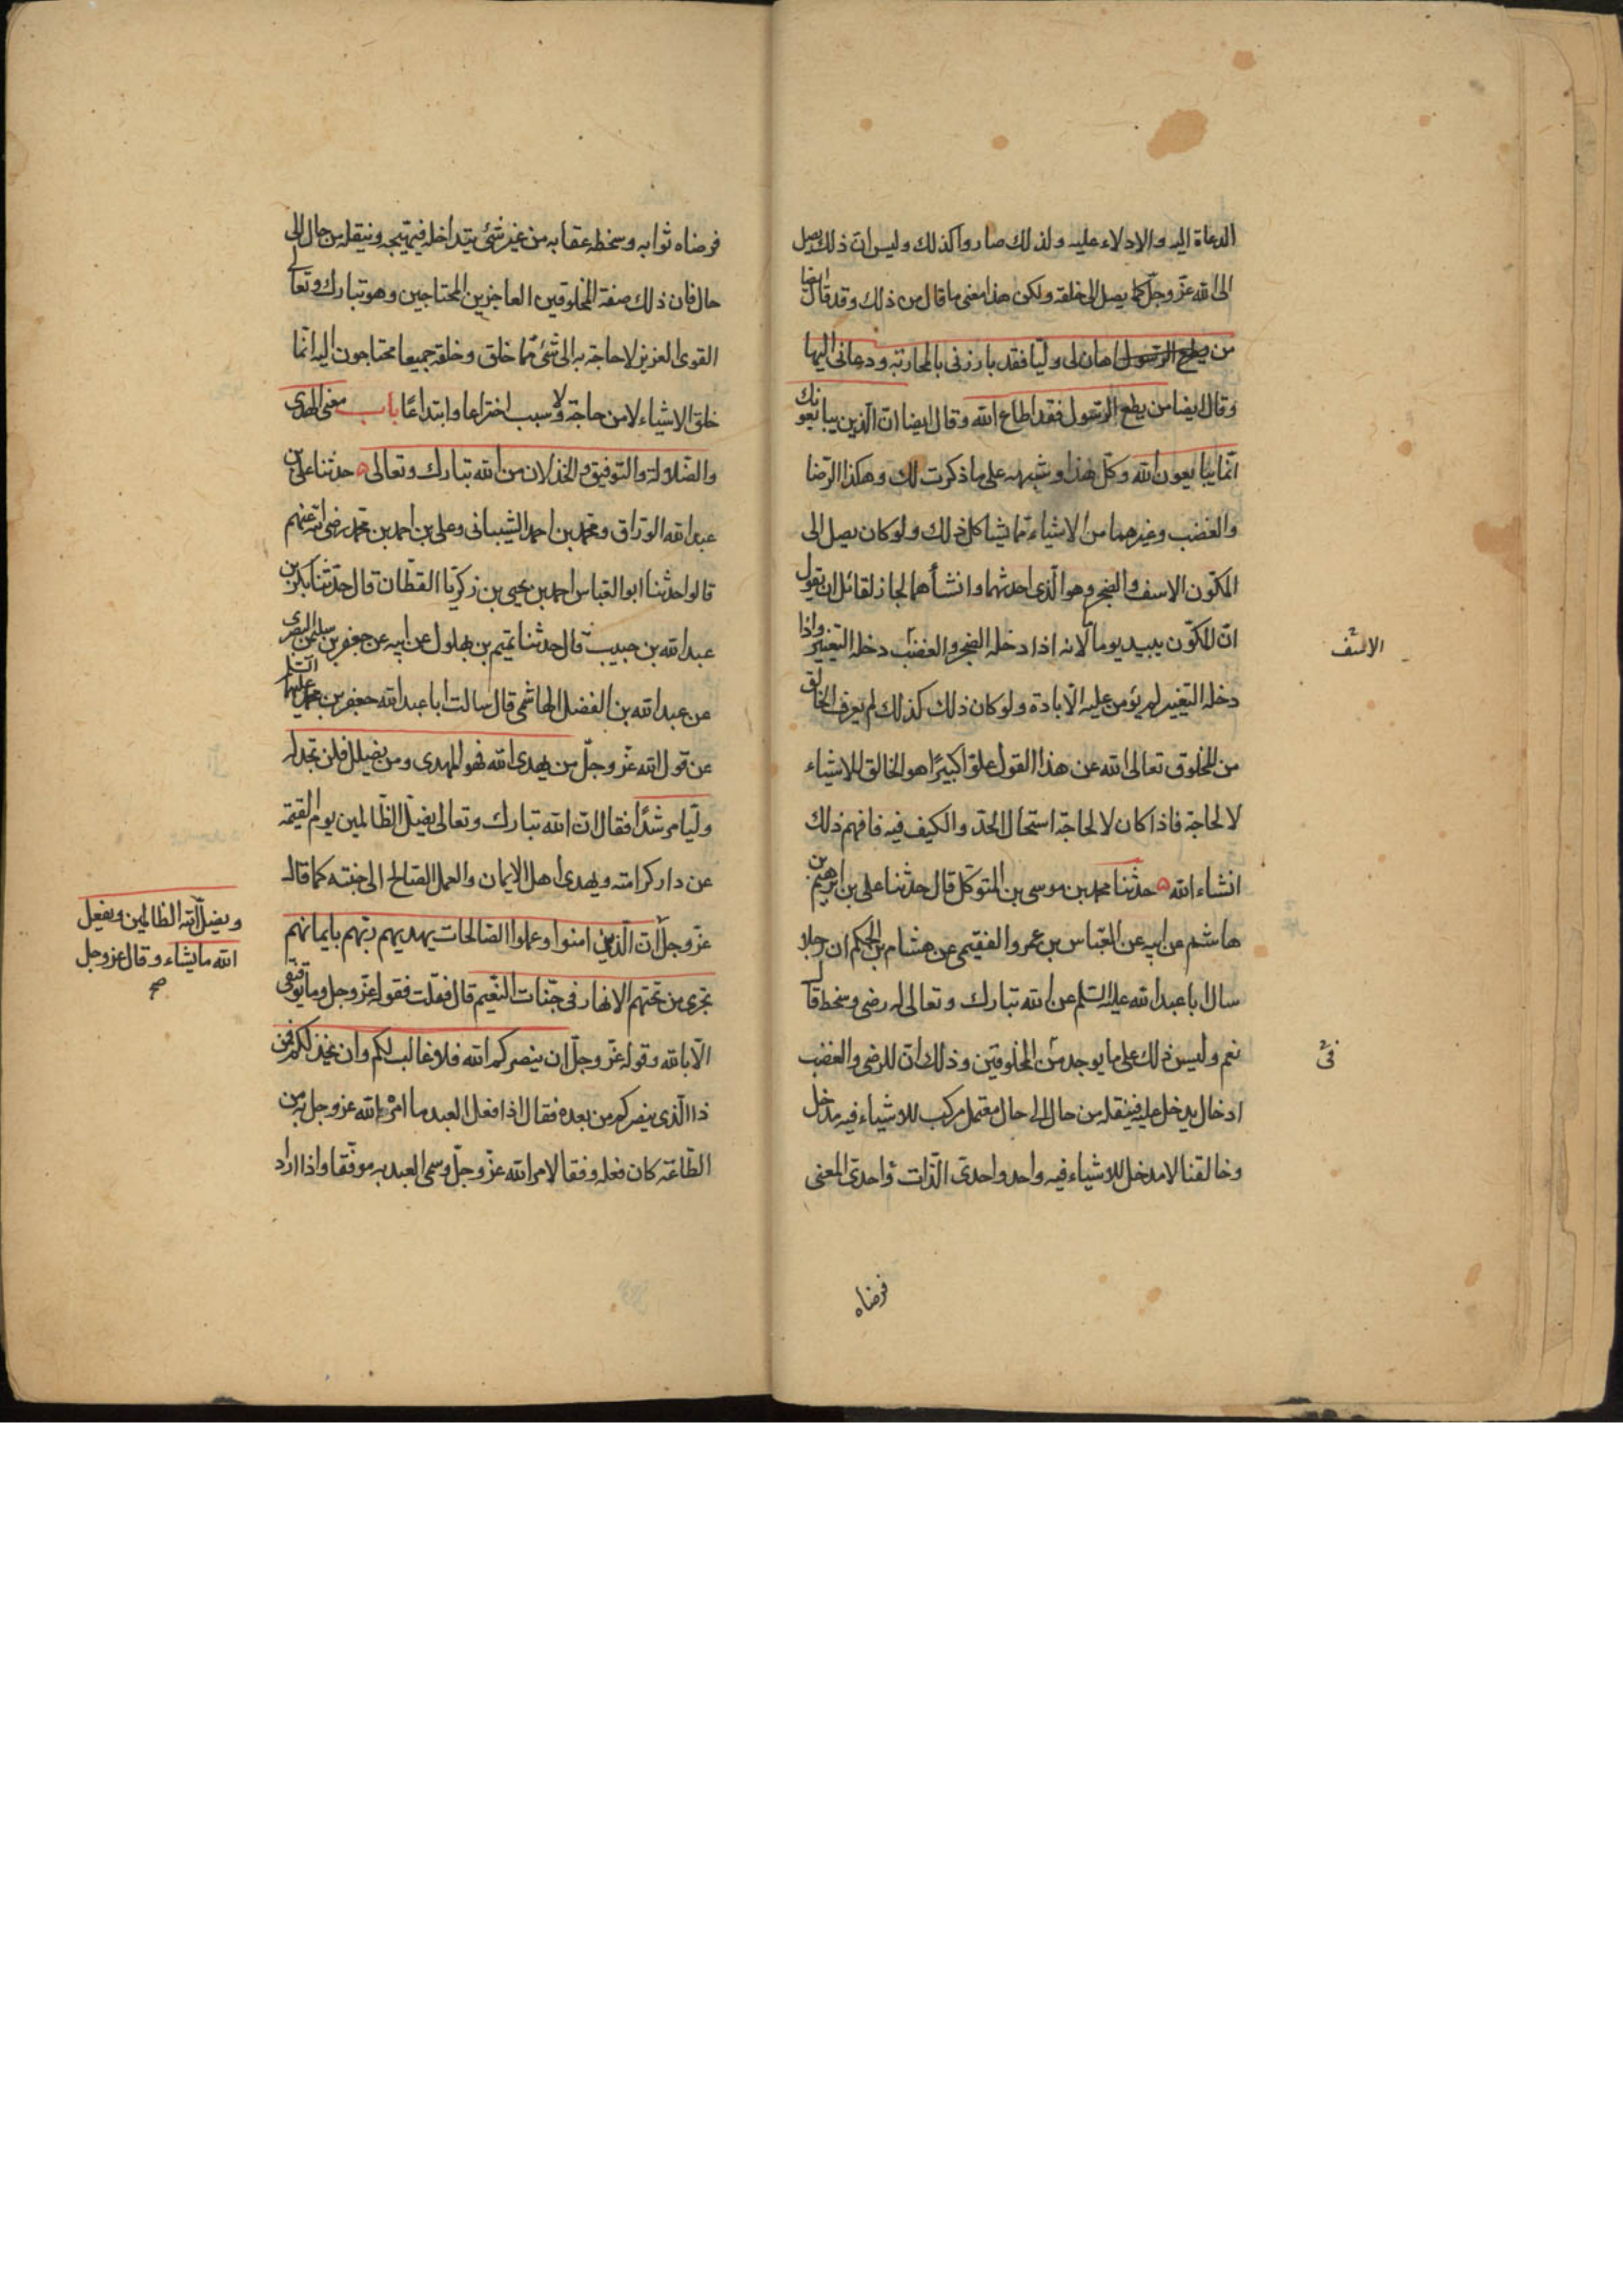 الدعاة اليه والادلاء عليه ولذلك صاروا كذلك وليس ان ذلك يصل
الى الله عز وجل كما يصل الى خلقه ولكن هذا معنى ما قال من ذلك وقد قال ايضا
من يطع الرسول اهان لى وليا فقد بارزنى بالمحاربة ودعانى اليها
وقال ايضا من يطع الرسول فقد اطاع الله وقال ايضا ان الذين يبايعونك
انما يبايعون الله وكل هذا وشبهه على ما ذكرت لك وهكذا الرضا
والغضب وغيرهما من الاشياء مما يشاكل ذلك ولو كان يصل الى
المكون الاسف والضجر وهو الذى احدثهما وانشأهما لجاز لقائل ان يقول
ان المكون يبيد يوما لانه اذا دخله الضجر والغضب دخله التغيير واذا
الاسف
دخله التغيير لم يؤمن عليه الابادة ولو كان ذلك كذلك لم يعرف الخالق
من المخلوق تعالى الله عن هذا القول علوا كبيرا هو الخالق للاشياء
لا لحاجة فاذا كان لا لحاجة استحال الحد والكيف فيه فافهم ذلك
انشاء الله حدثنا محمد بن موسى بن المتوكل قال حدثنا على بن ابرهيم بن
هاشم عن ابيه عن العباس بن عمرو الفقيمى عن هشام بن الحكم ان رجلا
سال ابا عبد الله عليه السلم عن الله تبارك وتعالى له رضى وسخط قال
نعم وليس ذلك على ما يوجد من المخلوقين وذلك ان للرضى والغضب
فى
ادخال يدخل عليه فينقله من حال الى حال معتمل مركب للاشياء فيه مدخل
وخالقنا لا مدخل للاشياء فيه واحد واحدى الذات واحدى المعنى
فرضاه
فرضاه ثوابه وسخطه عقابه من غير شئ يتداخله فيهيجه وينقله من حال الى
حال فان ذلك صفة المخلوقين العاجزين المحتاجين وهو تبارك وتعالى
القوى العزيز لا حاجة به الى شئ مما خلق وخلقه جميعا محتاجون اليه انما
خلق الاشياء لا من حاجة ولا سبب اختراعا وابتداعا باب معنى الهدى
والضلالة والتوفيق والخذلان من الله تبارك وتعالى حدثنا على بن
عبد الله الوراق ومحمد بن احمد الشيبانى وعلى بن احمد بن محمد رضى الله عنهم
قالوا حدثنا ابو العباس احمد بن يحيى بن زكريا القطان قال حدثنا بكر بن
عبد الله بن حبيب قال حدثنا تميم بن بهلول عن ابيه عن جعفر بن سليمن البصرى
عن عبد الله بن الفضل الهاشمى قال سالت ابا عبد الله جعفر بن محمد عليهما السلم
عن قول الله عز وجل من يهدى الله فهو المهدى ومن يضلل فلن تجد له
وليا مرشدا فقال ان الله تبارك وتعالى يضل الظالمين يوم القيمة
عن دار كرامته ويهدى اهل الايمان والعمل الصالح الى جنته كما قال
ويضل الله الظالمين ويفعل
الله ما يشاء وقال عز وجل
صح
عز وجل ان الذين امنوا وعملوا الصالحات يهديهم ربهم بايمانهم
تجرى من تحتهم الانهار فى جنات النعيم قال فقلت فقوله عز وجل وما توفيقى
الا بالله وقوله عز وجل ان ينصركم الله فلا غالب لكم وان يخذلكم فمن
ذا الذى ينصركم من بعده فقال اذا فعل العبد ما امره الله عز وجل به من
الطاعة كان فعله وفقا لامر الله عز وجل وسمى العبد به موفقا واذا اراد